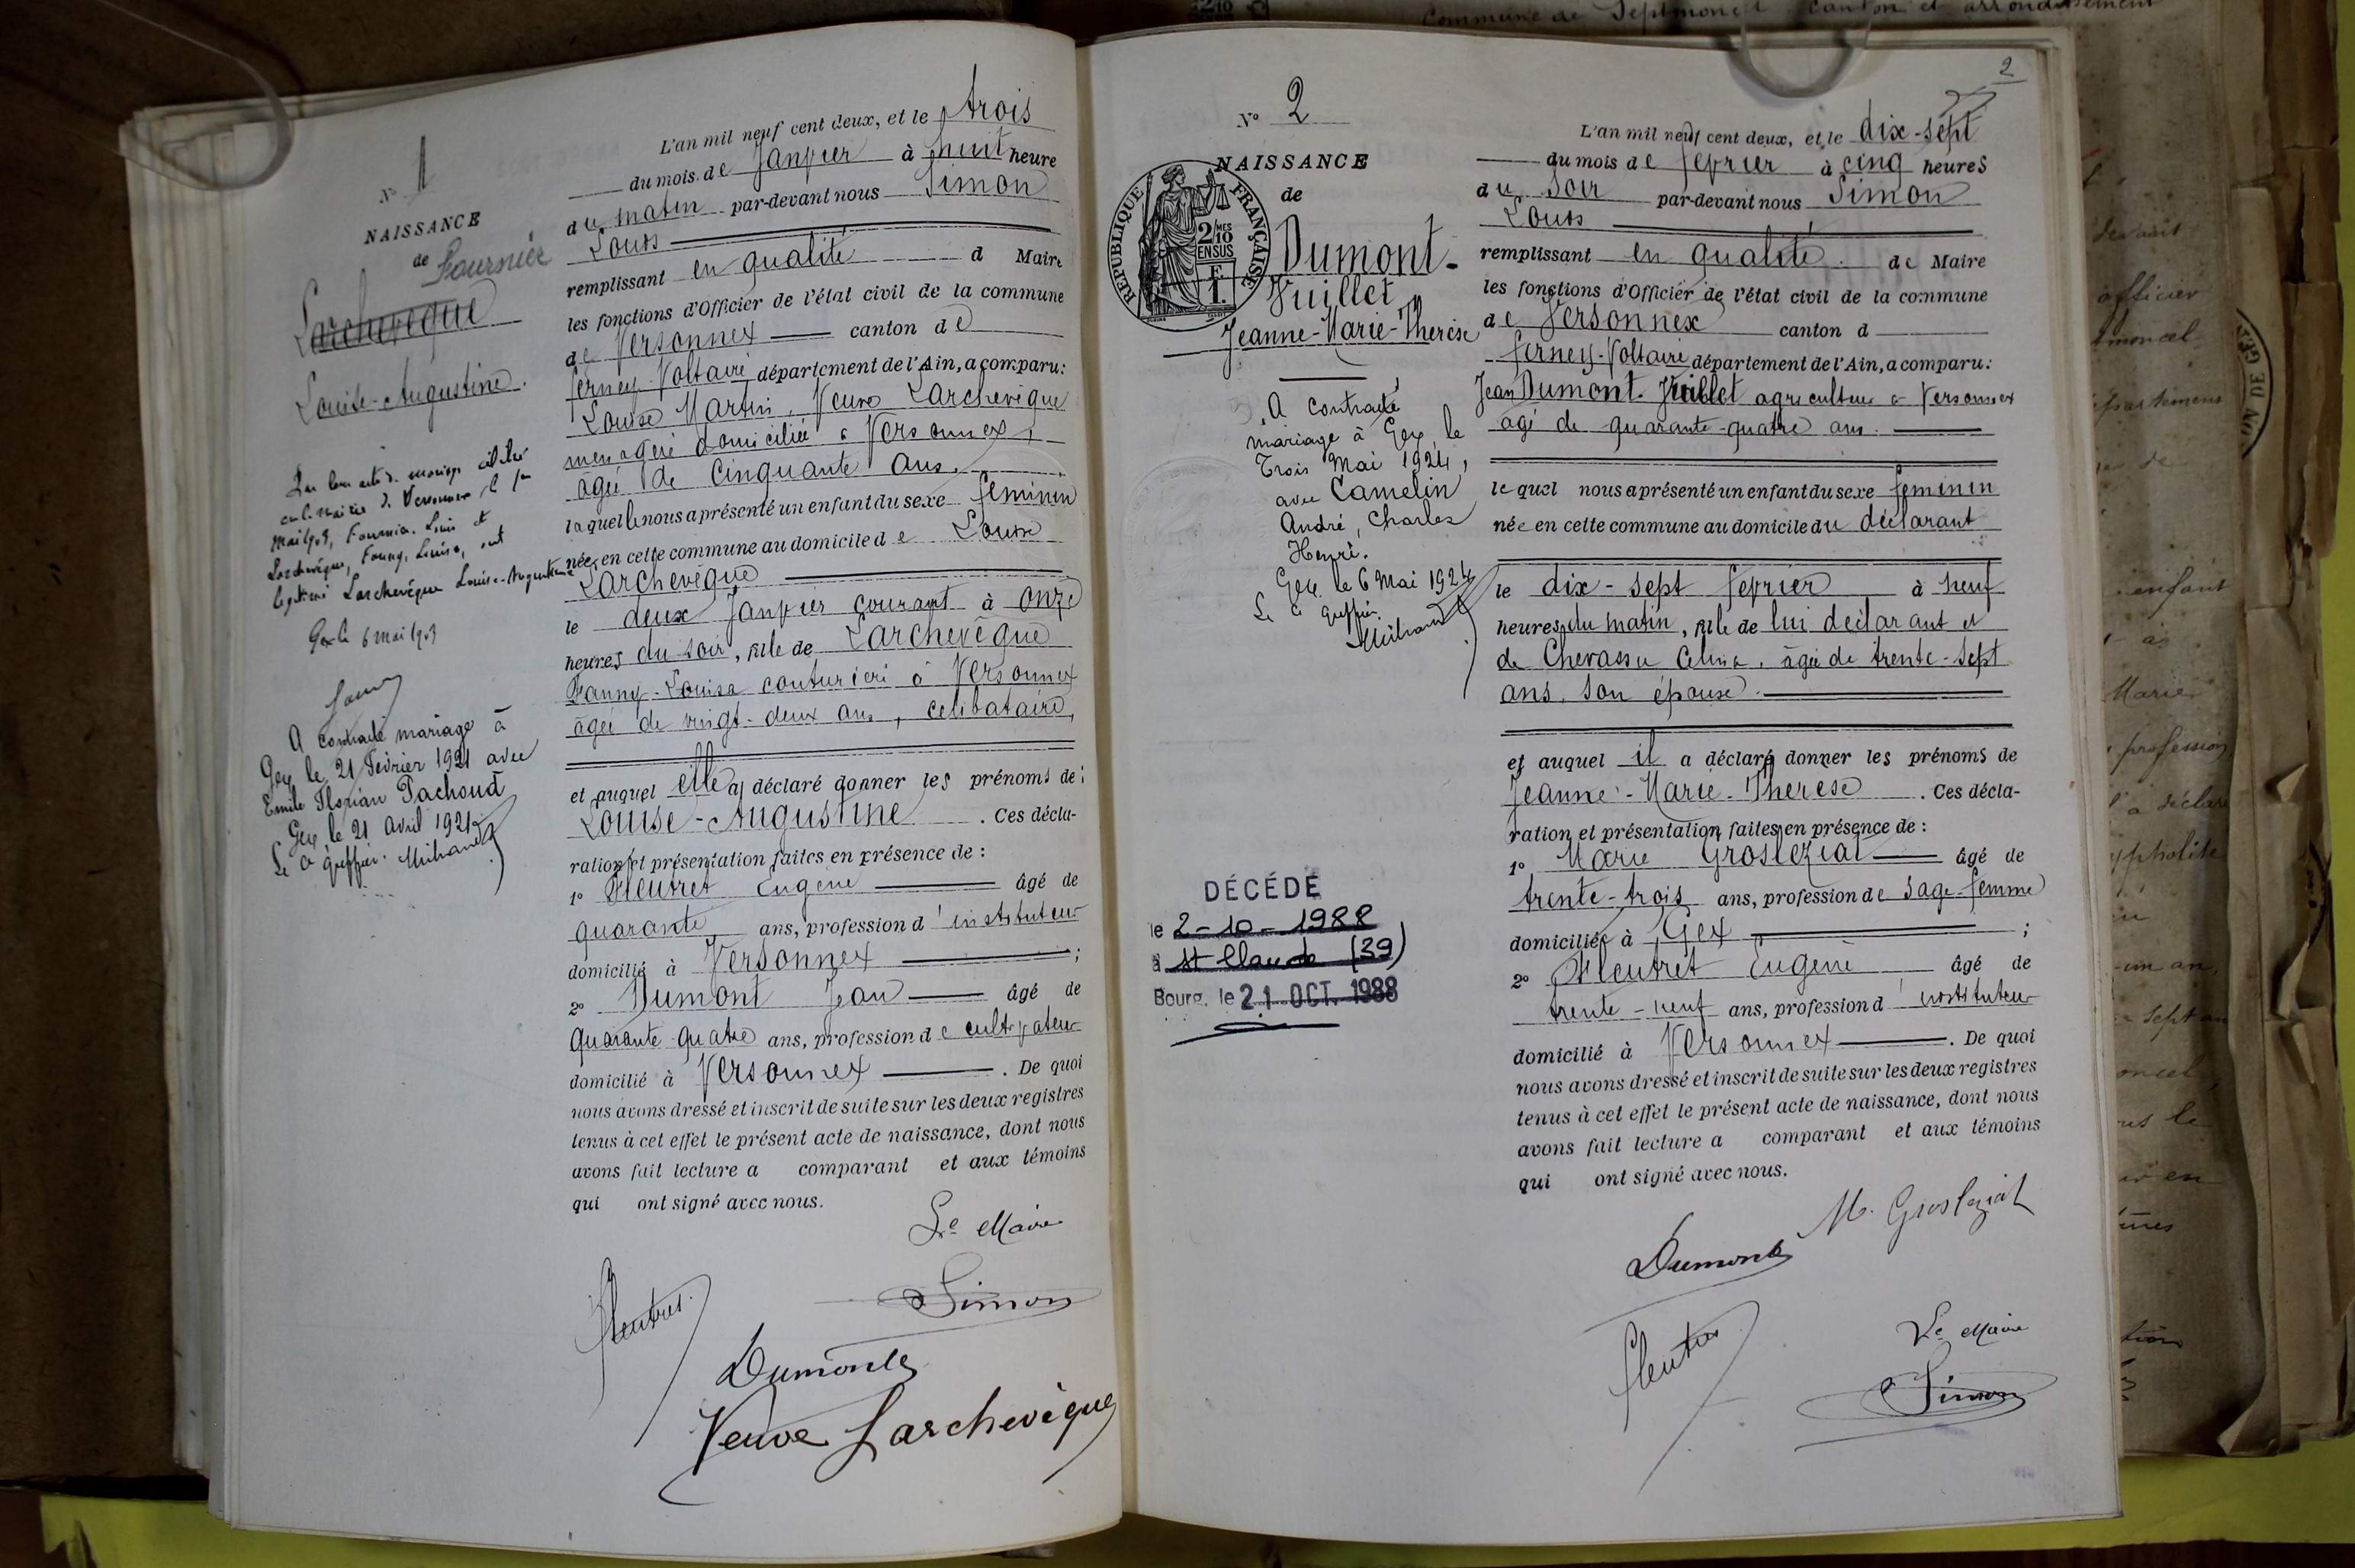 Commune de Septmoncel canton et arrondissement
N° 1
NAISSANCE
de Fournier
Larchevêque
Louise-Augustine.
Par leur acte de mariage célébré
en la mairie de Versonnex, le 1er
mai 1903, Fournier Louis et
Larchevêque, Fanny, Louise, ont
légitimé Larchevêque Louise-Augustine
Gex le 6 mai 1903
A contracté mariage à
Gex le 21 Février 1921 avec
Emile Florian Pachoud
Gex, le 21 Avril 1921
Le Greffier.
L'an mil neuf cent deux, et le trois
du mois de Janvier à huit heure
du matin par-devant nous Simon
Louis
remplissant en qualité d Maire
les fonctions d'Officier de l'état civil de la commune
de Versonnex canton de
Ferney-Voltaire département de l'Ain, a comparu:
Louise Martin, Veuve Larchevêque
menagère domiciliée à Versonnex,
âgée de cinquante ans.
laquelle nous a présenté un enfant du sexe féminin
née en cette commune au domicile de Louise
Larchevêque
le deux Janvier courant à onze
heures du soir, fille de Larchevêque
Fanny-Louisa couturière à Versonnex
âgée de vingt-deux ans, célibataire,
et auquel elle a déclaré donner les prénoms de:
Louise-Augustine. Ces décla-
ration et présentation faites en présence de:
1° Fleutret Eugène âgé de
quarante ans, profession d'instituteur
domicilié à Versonnex ;
2° Dumont Jean âgé de
quarante quatre ans, profession de cultivateur
domicilié à Versonnex. De quoi
nous avons dressé et inscrit de suite sur les deux registres
tenus à cet effet le présent acte de naissance, dont nous
avons fait lecture a comparant et aux témoins
qui ont signé avec nous.
Le Maire
Fleutret
Simon
Dumont
Veuve Larchevêque
2
N° 2
NAISSANCE
de
REPUBLIQUE FRANÇAISE
2 MES
10
EN SUS
F
1.
Dumont-
Vuillet
Jeanne-Marie-Thérèse
A contracté
mariage à Gex, le
Trois Mai 1924,
avec Camelin
André, Charles
Henri.
Gex, le 6 Mai 1924
Le Greffier
DÉCÉDÉ
le 2-10-1988
à St Claude (39)
Bourg, le 21 OCT. 1988
L'an mil neuf cent deux, et le dix-sept
du mois de février à cinq heures
du soir par-devant nous Simon
Louis
remplissant en qualité de Maire
les fonctions d'Officier de l'état civil de la commune
de Versonnex canton d
Ferney-Voltaire département de l'Ain, a comparu:
Jean Dumont-Vuillet agriculteur à Versonnex
âgé de quarante-quatre ans.
lequel nous a présenté un enfant du sexe féminin
née en cette commune au domicile du déclarant
le dix-sept février à neuf
heures du matin, fille de lui déclarant et
de Chevassu Celina, âgée de trente-sept
ans, son épouse.
et auquel il a déclaré donner les prénoms de
Jeanne-Marie-Thérèse. Ces décla-
ration et présentation faites en présence de:
1° Marie Grosleziat âgé de
trente-trois ans, profession de sage-femme
domiciliée à Gex ;
2° Fleutret Eugène âgé de
trente-neuf ans, profession d'instituteur
domicilié à Versonnex. De quoi
nous avons dressé et inscrit de suite sur les deux registres
tenus à cet effet le présent acte de naissance, dont nous
avons fait lecture a comparant et aux témoins
qui ont signé avec nous.
M. Grosleziat
Dumont
Fleutret
Le Maire
Simon